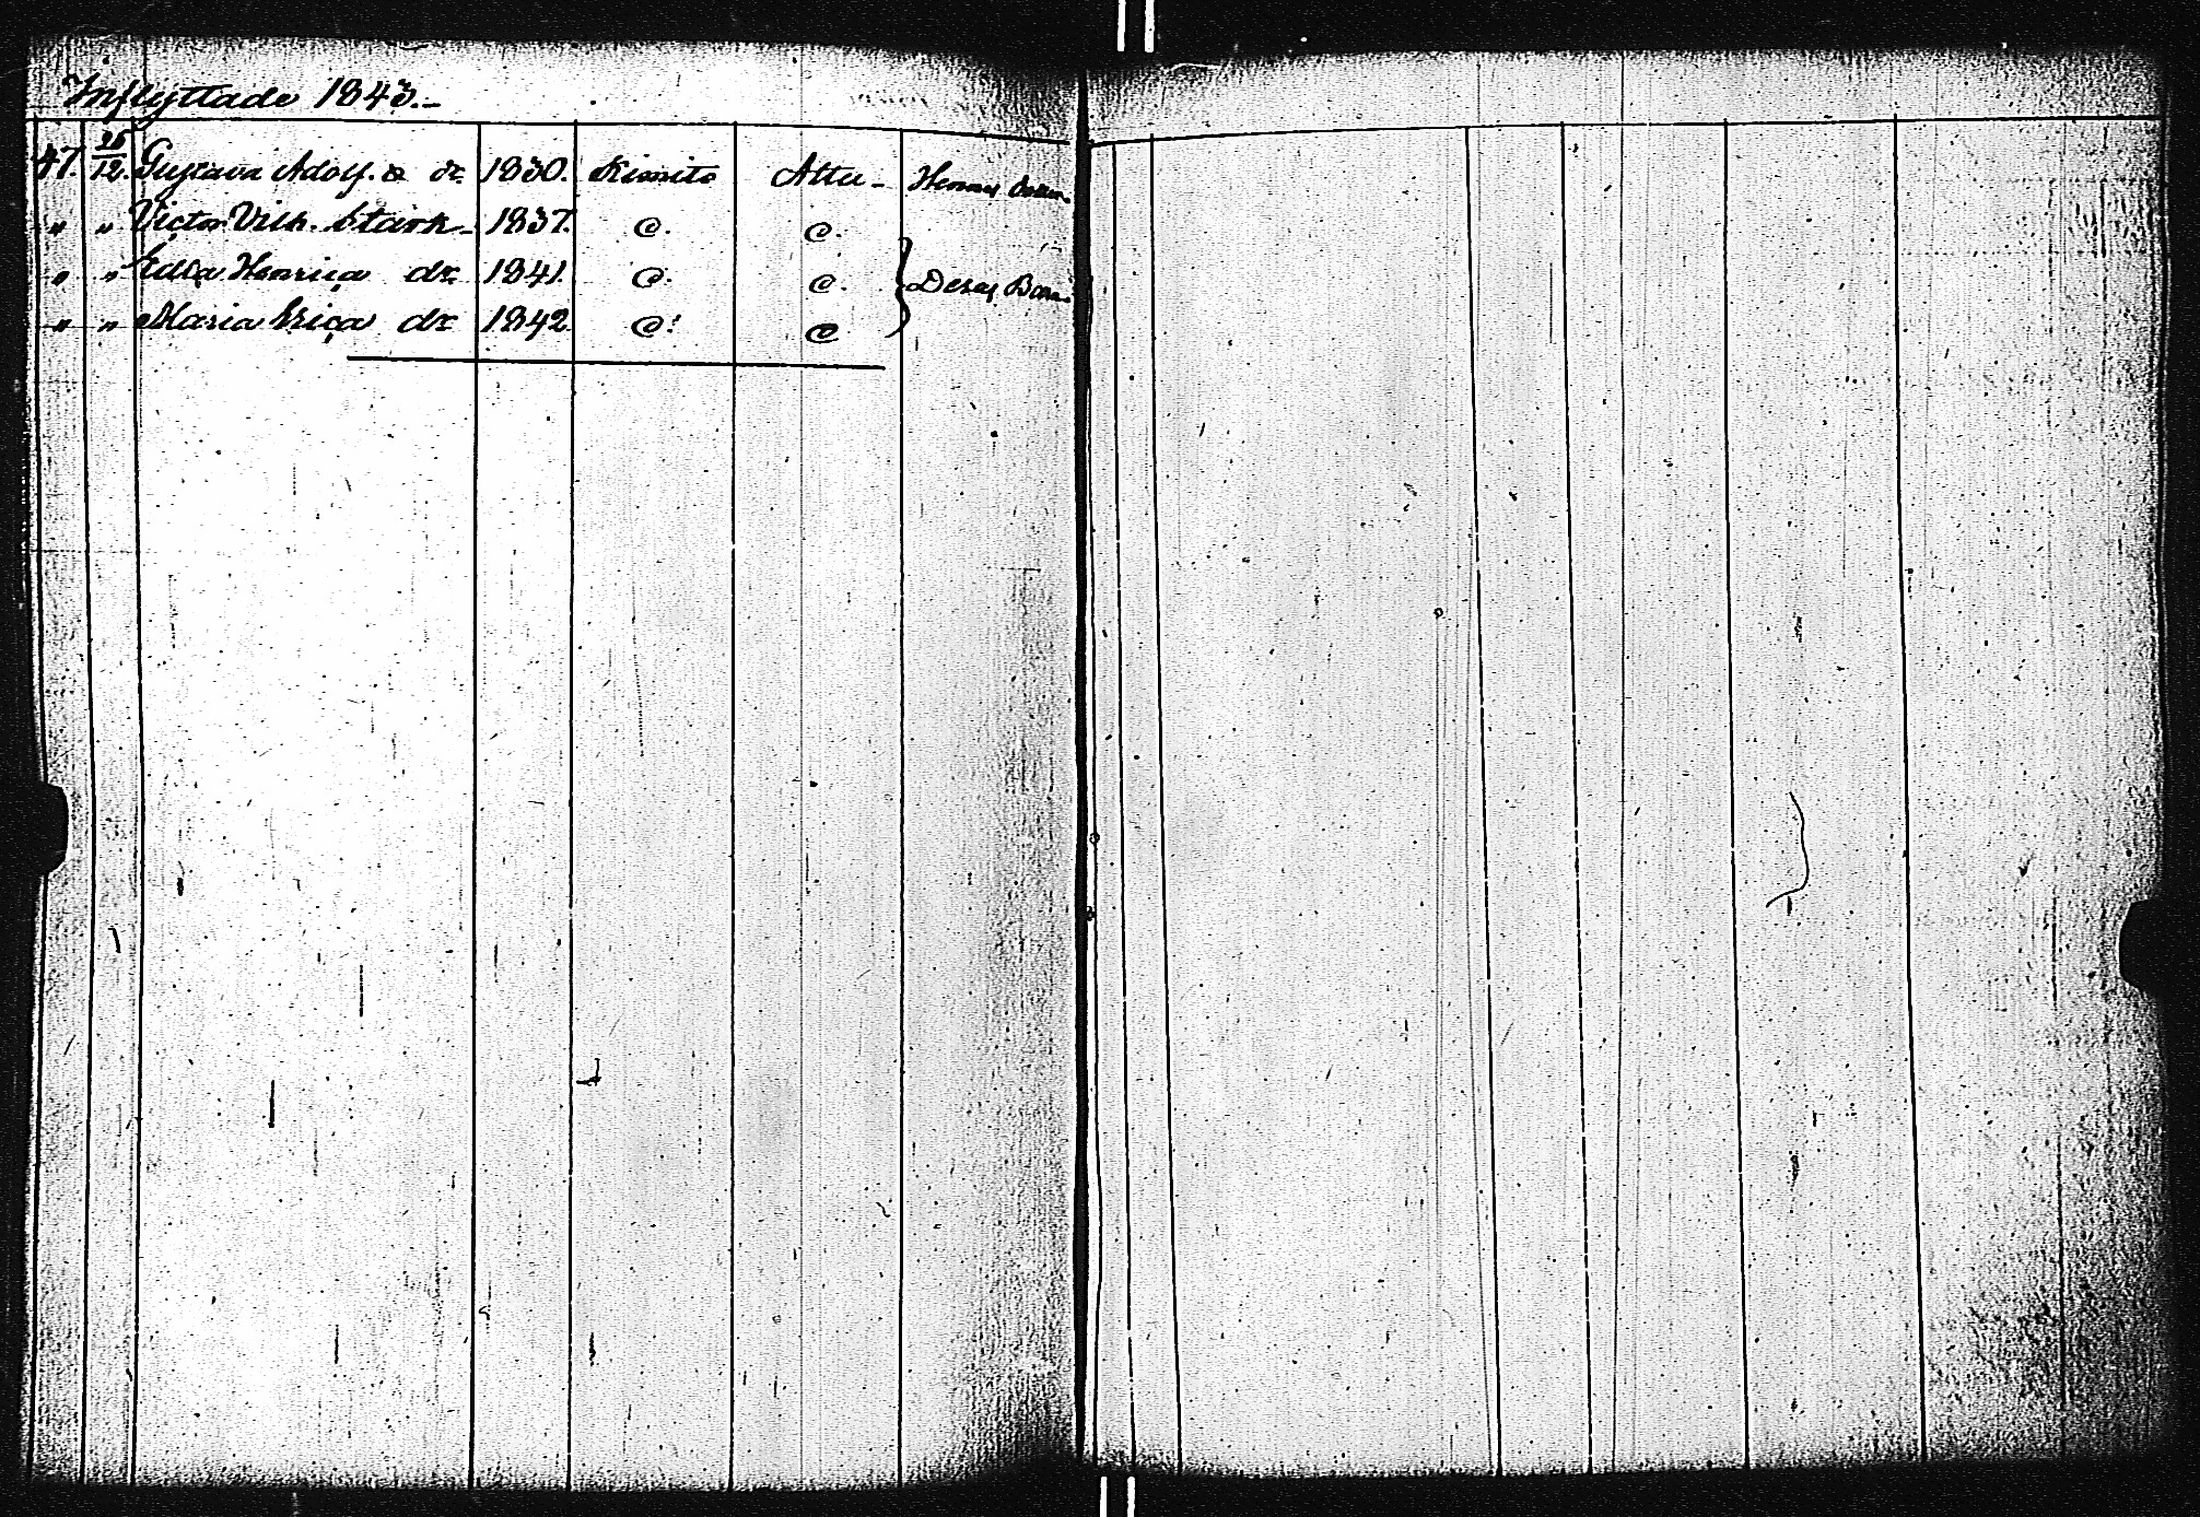 Inflyttade 1843.
47. 26/12. Gustava Adolf. a dr. 1830. Kimito Attu Hennes
" " Victor Vilh. Stark 1837. @. @.
" " Edla Henrica dr. 1841. @. @. Deras Barn.
" " Maria Erica dr. 1842 @. @